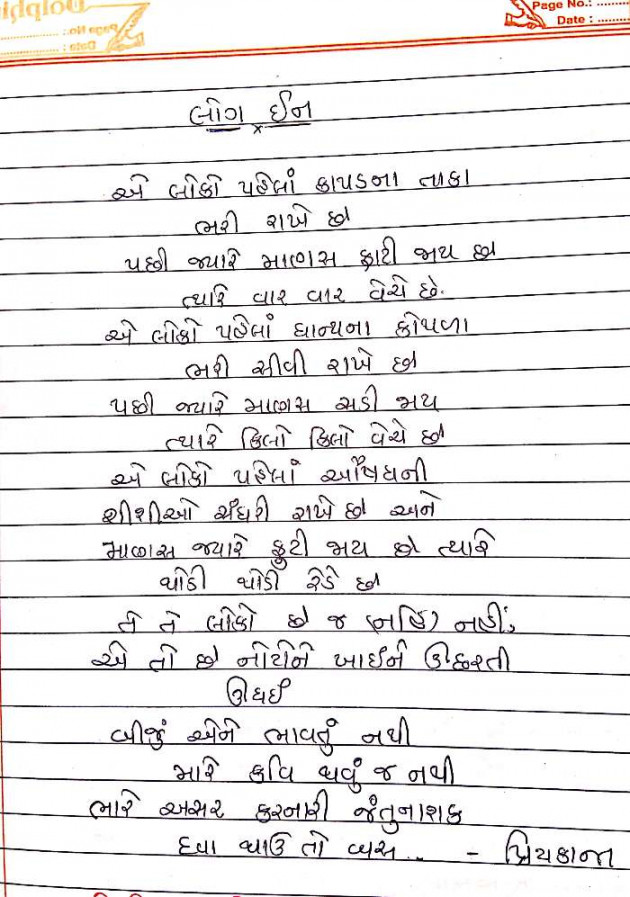 Page No.:
Date :
લોગ ઈન
એ લોકો પહેલાં કાપડના તાકા
ભરી રાખે છે
પછી જ્યારે માણસ ફાટી જાય છે
ત્યારે વાર વાર વેચે છે.
એ લોકો પહેલાં ધાન્યના કોથળા
ભરી સીવી રાખે છે
પછી જ્યારે માણસ સડી જાય
ત્યારે કિલો કિલો વેચે છે
એ લોકો પહેલાં ઔષધની
શીશીઓ સંઘરી રાખે છે અને
માણસ જ્યારે ફુટી જાય છે ત્યારે
થોડી થોડી રેડે છે
તે તે લોકો છે જ (નહિ) નહીં;
એ તો છે નોટોને ખાઈને ઊછરતી
ઊધઈ
બીજું એને ભાવતું નથી
મારે કવિ થવું જ નથી
ભારે અસર કરનારી જંતુનાશક
દવા થાઉ તો બસ.. - પ્રિયકાન્ત